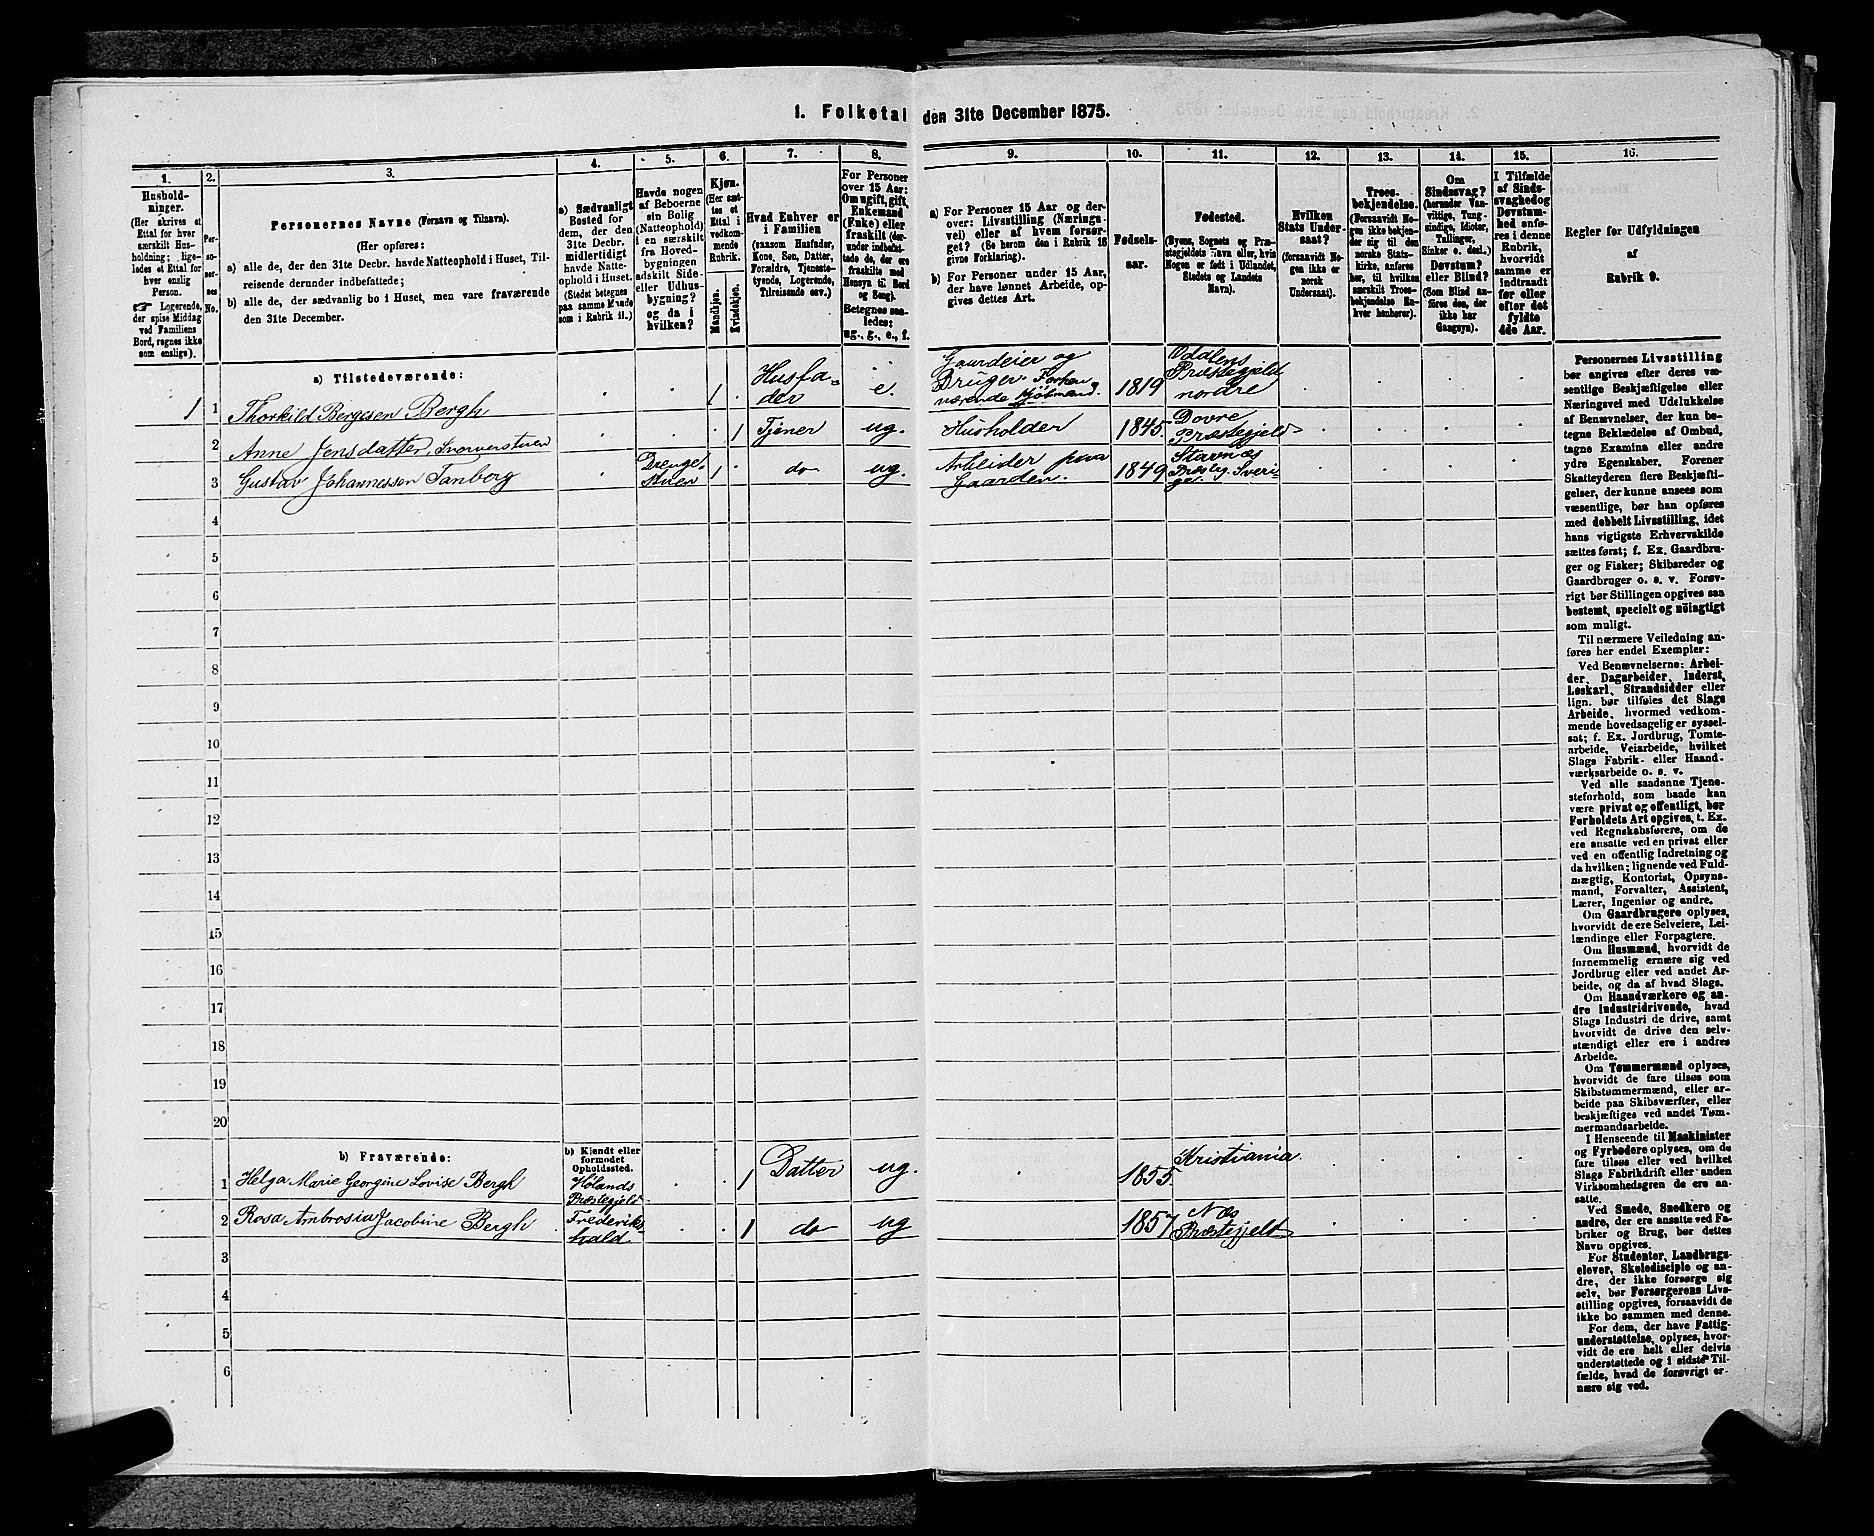 1. Folketal den 31te December 1875.
1.
Hushold-
ninger.
(Her skrives et
Ettal for hver
særskilt Hus-
holdning; lige-
ledes et Ettal for
hver enslig
Person.
☞ Logerende,
der spise Middag
ved Familiens
Bord, regnes ikke
som enslige).
2.
Per-
so-
ner-
nes
No.
3.
Personernes Navne (Fornavn og Tilnavn).
(Her opføres:
a) alle de, der den 31te Decbr. havde Natteophold i Huset, Til-
reisende derunder indbefattede;
b) alle de, der sædvanlig bo i Huset, men vare fraværende
den 31te December.
4.
a) Sædvanligt
Bosted for
dem, der den
31te Decbr.
midlertidigt
havde Natte-
ophold i Huset.
(Stedet betegnes
paa samme Maade
som i Rubrik 11.)
5.
Havde nogen
af Beboerne
sin Bolig
(Natteophold)
i en særskilt
fra Hoved-
bygningen
adskilt Side-
eller Udhus-
bygning?
og da i
hvilken?
6.
Kjøn.
(Her sæt-
tes et
Ettal i
vedkom-
mende
Rubrik.
Mandkjøn.
Kvindekjøn.
7.
Hvad Enhver er
i Familien
(saasom Husfader,
Kone, Søn, Datter,
Forældre, Tjeneste-
tyende, Logerende,
Tilreisende osv.)
8.
For Personer
over 15 Aar:
Om ugift, gift,
Enkemand
(Enke) eller
fraskilt (der-
under indbefat-
tede de, der ere
fraskilte med
Hensyn til Bord
og Seng).
Betegnes saa-
ledes:
ug., g., e., f.
9.
a) For Personer 15 Aar og der-
over: Livsstilling (Nærings-
vei) eller af hvem forsør-
get? (Se herom den i Rubrik 16
givne Forklaring).
b) For Personer under 15 Aar,
der have lønnet Arbeide, op-
gives dettes Art.
10.
Fødsels-
aar.
11.
Fødested.
(Byens, Sognets og Præ-
stegjeldets Navn eller, hvis
Nogen er født i Udlandet,
Stedets og Landets
Navn).
12.
Hvilken
Stats Under-
saat?
(forsaavidt No-
gen ikke er
norsk
Undersaat).
13.
Troes-
bekjendelse.
(Forsaavidt No-
gen ikke bekjen-
der sig til den
norske Stats-
kirke, anføres
her, til hvilken
særskilt Troes-
bekjendelse En-
hver henhører).
14.
Om
Sindssvag?
(herunder Van-
vittige, Tung-
sindige, Idioter,
Tullinger,
Sinker o. desl.)
Døvstum?
eller Blind?
(Som Blind an-
føres den, der
ikke har
Gangsyn).
15.
I Tilfælde
af Sinds-
svaghed og
Døvstum-
hed anfø-
res i denne
Rubrik,
hvorvidt
samme er
indtraadt
før eller
efter det
fyldte
4de Aar.
16.
Regler for Udfyldningen
af
Rubrik 9.
a) Tilstedeværende:
1 1 Thorkild Bergesen Bergh 1 Husfa-
der e. Gaardeier og
Bruger. Forhen
værende Kjøbmand. 1819 Oddlens
Præstegjeld
nordre
2 Anne Jensdatter 1 Tjener ug. Husholder 1845. Dovre
Præstegjeld
3 Gustav Johannessen Tanberg Drenge-
stuen 1 do ug. Arbeider paa
Gaarden. 1849 Stavnæs
Præsteg. Sveri-
ge.
4
5
6
7
8
9
10
11
12
13
14
15
16
17
18
19
20
b) Fraværende:
b) Kjendt eller
formodet
Opholdssted.
1 Helga Marie Georgine Lovise Bergh Hølands
Præstegjeld 1 Datter ug. 1855 Kristiania
2 Rosa Ambrosia Jacobine Bergh Frederiks-
hald 1 do ug 1857 Næs
Præstegjeld
3
4
5
6
Personernes Livsstilling
bør angives efter deres væ-
sentlige Beskjæftigelse eller
Næringsvei med Udelukkelse
af Benævnelser, der kun be-
tegne Beklædelse af Ombud,
tagne Examina eller andre
ydre Egenskaber. Forener
Skatteyderen flere Beskjæfti-
gelser, der kunne ansees som
væsentlige, bør han opføres
med dobbelt Livsstilling, idet
hans vigtigste Erhvervskilde
sættes først; f. Ex. Gaardbru-
ger og Fisker; Skibsreder og
Gaardbruger o. s. v. Forøv-
rigt bør Stillingen opgives saa
bestemt, specielt og nøiagtigt
som muligt.
Til nærmere Veiledning an-
føres her endel Exempler:
Ved Benævnelserne: Arbei-
der, Dagarbeider, Inderst,
Løskarl, Strandsidder eller
lign. bør tilføies det Slags
Arbeide, hvormed vedkom-
mende hovedsagelig er syssel-
sat; f. Ex. Jordbrug, Tomte-
arbeide, Veiarbeide, hvilket
Slags Fabrik- eller Haand-
værksarbeide o. s. v.
Ved alle saadanne Tjene-
steforhold, som baade kan
være privat og offentligt, bør
Forholdets Art opgives, t. Ex.
ved Regnskabsførere, om de
ere ansatte ved en privat eller
ved en offentlig Indretning og
da hvilken; lignende ved Fuld-
mægtig, Kontorist, Opsyns-
mand, Forvalter, Assistent,
Lærer, Ingeniør og andre.
Om Gaardbrugere oplyses,
hvorvidt de ere Selveiere, Lei-
lændinge eller Forpagtere.
Om Husmænd, hvorvidt de
fornemmelig ernære sig ved
Jordbrug eller ved andet Ar-
beide, og da af hvad Slags.
Om Haandværkere og an-
dre Industridrivende, hvad
Slags Industri de drive, samt
hvorvidt de drive den selv-
stændigt eller ere i andres
Arbeide.
Om Tømmermænd oplyses,
hvorvidt de fare tilsøs som
Skibstømmermænd, eller ar-
beide paa Skibsværfter, eller
beskjæftiges ved andet Tøm-
mermandsarbeide.
I Henseende til Maskinister
og Fyrbødere oplyses, om de
fare tilsøs eller ved hvilket
Slags Fabrikdrift eller anden
Virksomhed de ere an-
satte.
Ved Smede, Snedkere og
andre, der ere ansatte ved Fa-
briker og Brug, bør dettes
Navn opgives.
For Studenter, Landbrugs-
elever, Skoledisciple og an-
dre, der ikke forsørge sig
selv, bør Forsørgerens Livs-
stilling opgives, forsaavidt de
ikke bo sammen med denne.
For dem, der have Fattig-
understøttelse, oplyses, hvor-
vidt de ere helt eller delvis
understøttede og i sidste Til-
fælde, hvad de forøvrigt er-
nære sig ved.